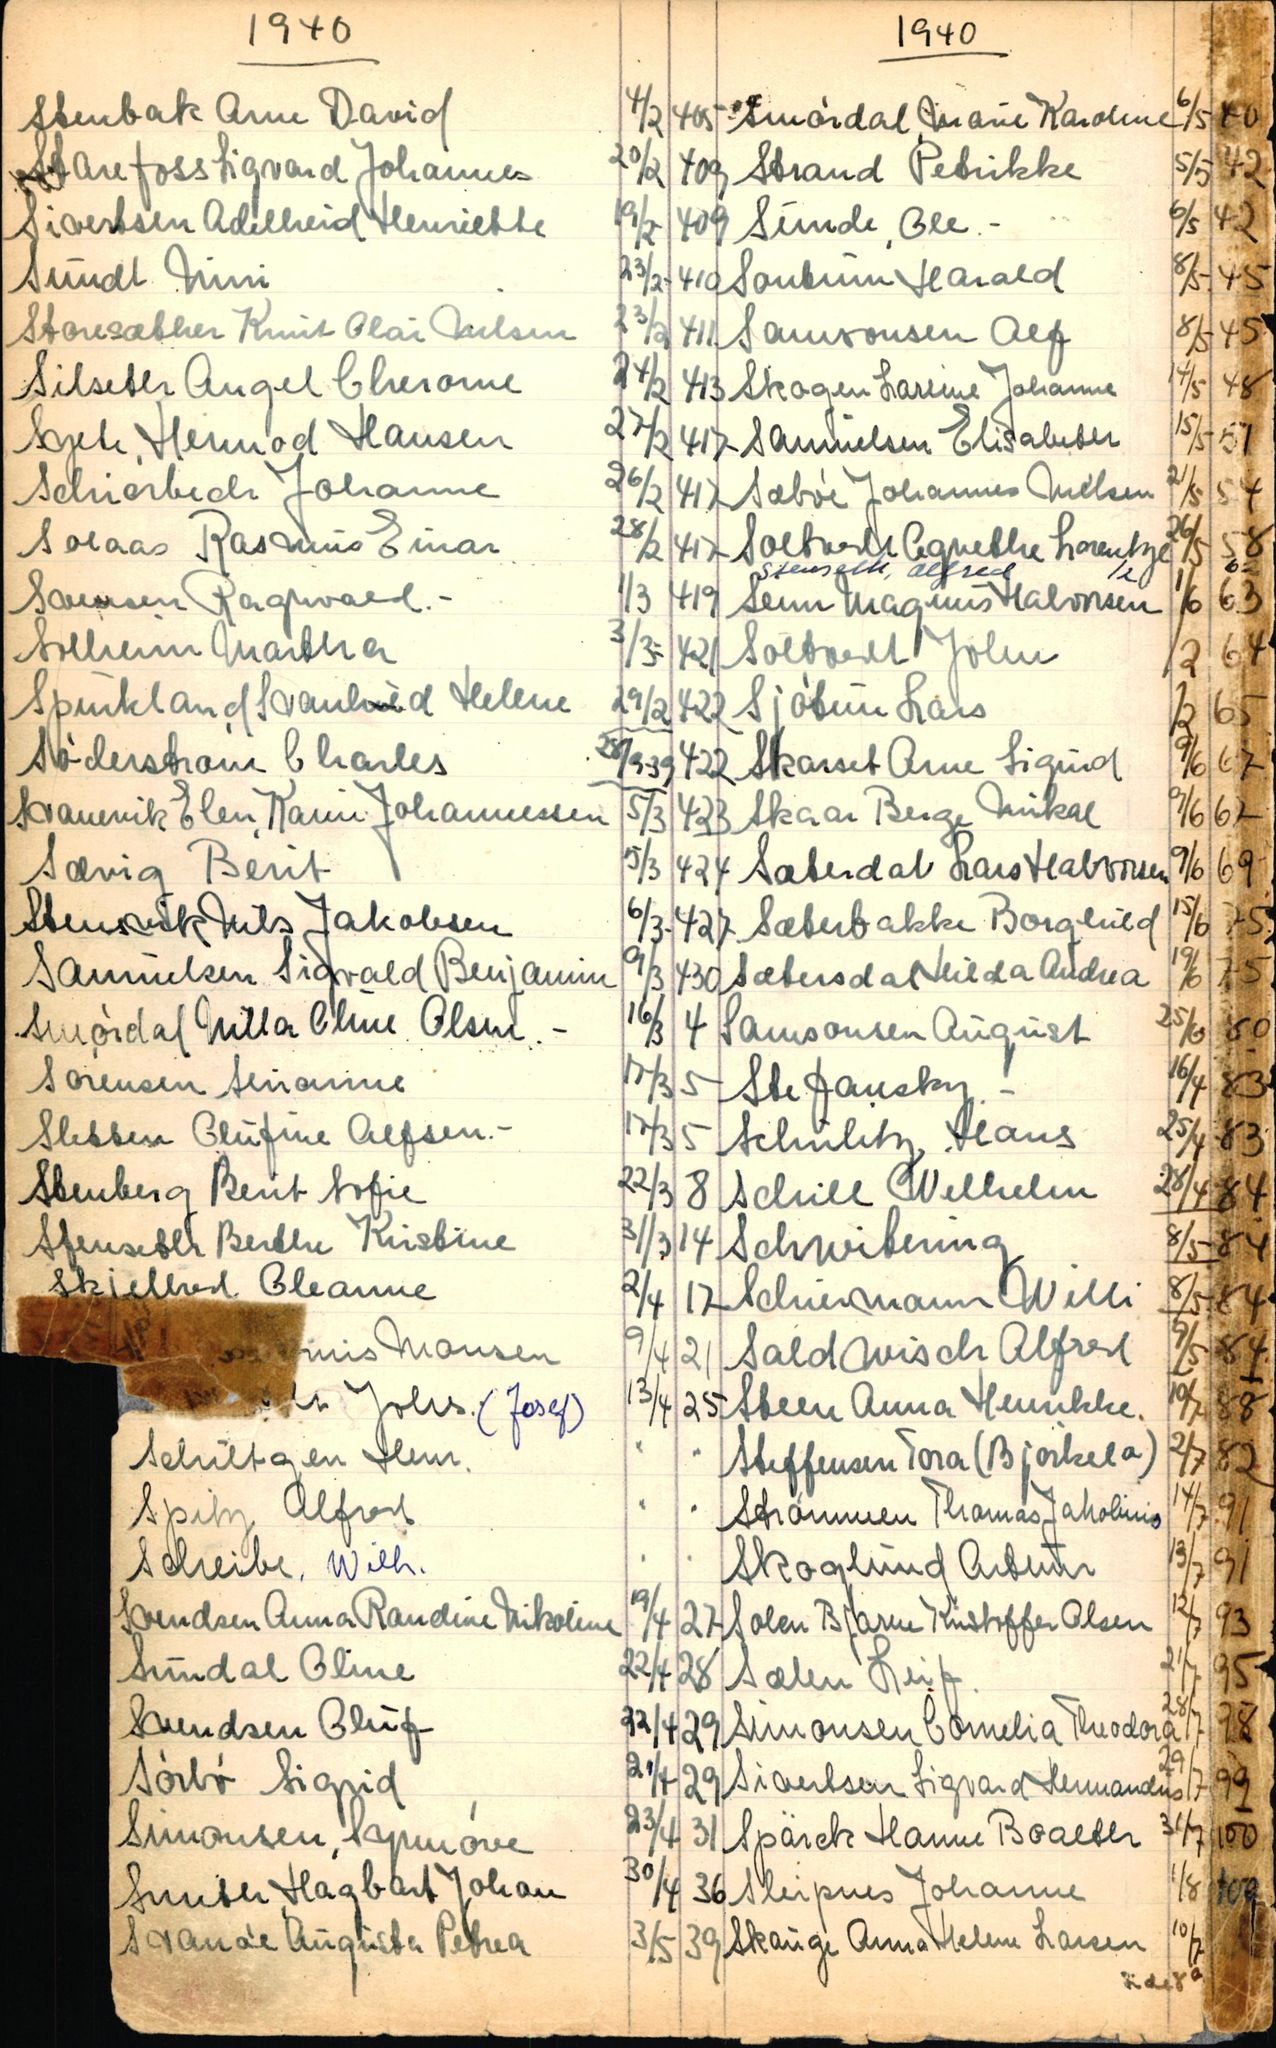 1940
Stenbak Arne David 4/2 405
Starefoss Sigvard Johannes 20/2 409
Sivertsen Adelheid Henriette 19/2 409
Sundt Nini 23/2 410
Storesæther Knut Olai Nilsen 23/2 411
Silseth Angel Cherorne 24/2 413
Syeh, Hermod Hansen 27/2 417
Schierbech Johanne 26/2 417
Solaas Rasmus Einar 28/2 417
Svensen Ragnvald.- 1/3 419
Solheim Martha 3/3 421
Spurkland Svanhild Helene 29/2 422
Söderström Charles 28/9-39 422
Svanevik Elen, Karin Johannessen 5/3 423
Sævig Berit 5/3 424
Stensvik Nils Jakobsen 6/3 427
Samuelsen Sigvald Benjamin 9/3 430
Smördal Milla Oline Olsen.- 16/3 4
Sorensen Susanne 17/3 5
Sletten Olufine Alfsen.- 17/3 5
Stenberg Berit Sofie 22/3 8
Stenseth Berthe Kristine 31/3 14
Skjelbred Oleanne 2/4 17
Monsen 9/4 21
Johs. (Josef) 13/4 25
Schültgen Henr. " "
Spitz Alfred " "
Scheibe, Wilh. " "
Svendsen Anna Randine Nikoline 19/4 27
Sundal Oline 22/4 28
Svendsen Oluf 22/4 29
Sörbö Sigrid 21/4 29
Simonsen, Synnöve 23/4 31
Sunter Hagbart Johan 30/4 36
Svanöe Augusta Petrea 3/5 39
1940
Smördal, Marie Karoline 6/5 40
Strand Petrikke 5/5 42
Sunde, Ole.- 6/5 42
Sontum Harald 8/5 45
Samsonsen Alf 8/5 45
Skogen Larine Johanne 14/5 48
Samuelsen Elisabeth 15/5 51
Sæböe Johannes Nilsen 21/5 54
Soltvedt Agnethe Lorentze 26/5 58
Stenseth, Alfred
Senn Magnus Halvorsen 1/6 63
Soltvedt John /2 64
Sjötun Lars /2 65
Skarset Arne Sigurd 9/6 67
Skaar Berge Mikal 9/6 67
Sæterdal Lars Halvorsen 9/6 69
Sæterbakke Borghild 15/6 75
Sætersdal Hilda Andrea 19/6 75
Samsonsen August 25/6 80
Stefansky.- 16/4 83
Schulitz, Hans 25/4 83
Schill Wilhelm 28/4 84
Schwitering 8/5 84
Schiermann Willi 8/5 84
Saldwisch Alfred 9/5 84
Steen Anna Henrikke. 10/7 88
Steffensen Tora (Bjorkela) 2/7 82
Strömmen Thomas Jakobinus 14/7 91
Skoglund Arthur 13/7 91
Solen Bjarne Kristoffer Olsen 12/7 93
Sælen Leif. 21/7 95
Simonsen Cornelia Theodora 28/7 98
Sivertsen Sigvard Hermandus 29/7 99
Spärck Hanne Boaeth 31/7 100
Sleipnes Johanne 1/8 109
Skauge Anna Helene Larsen 10/7